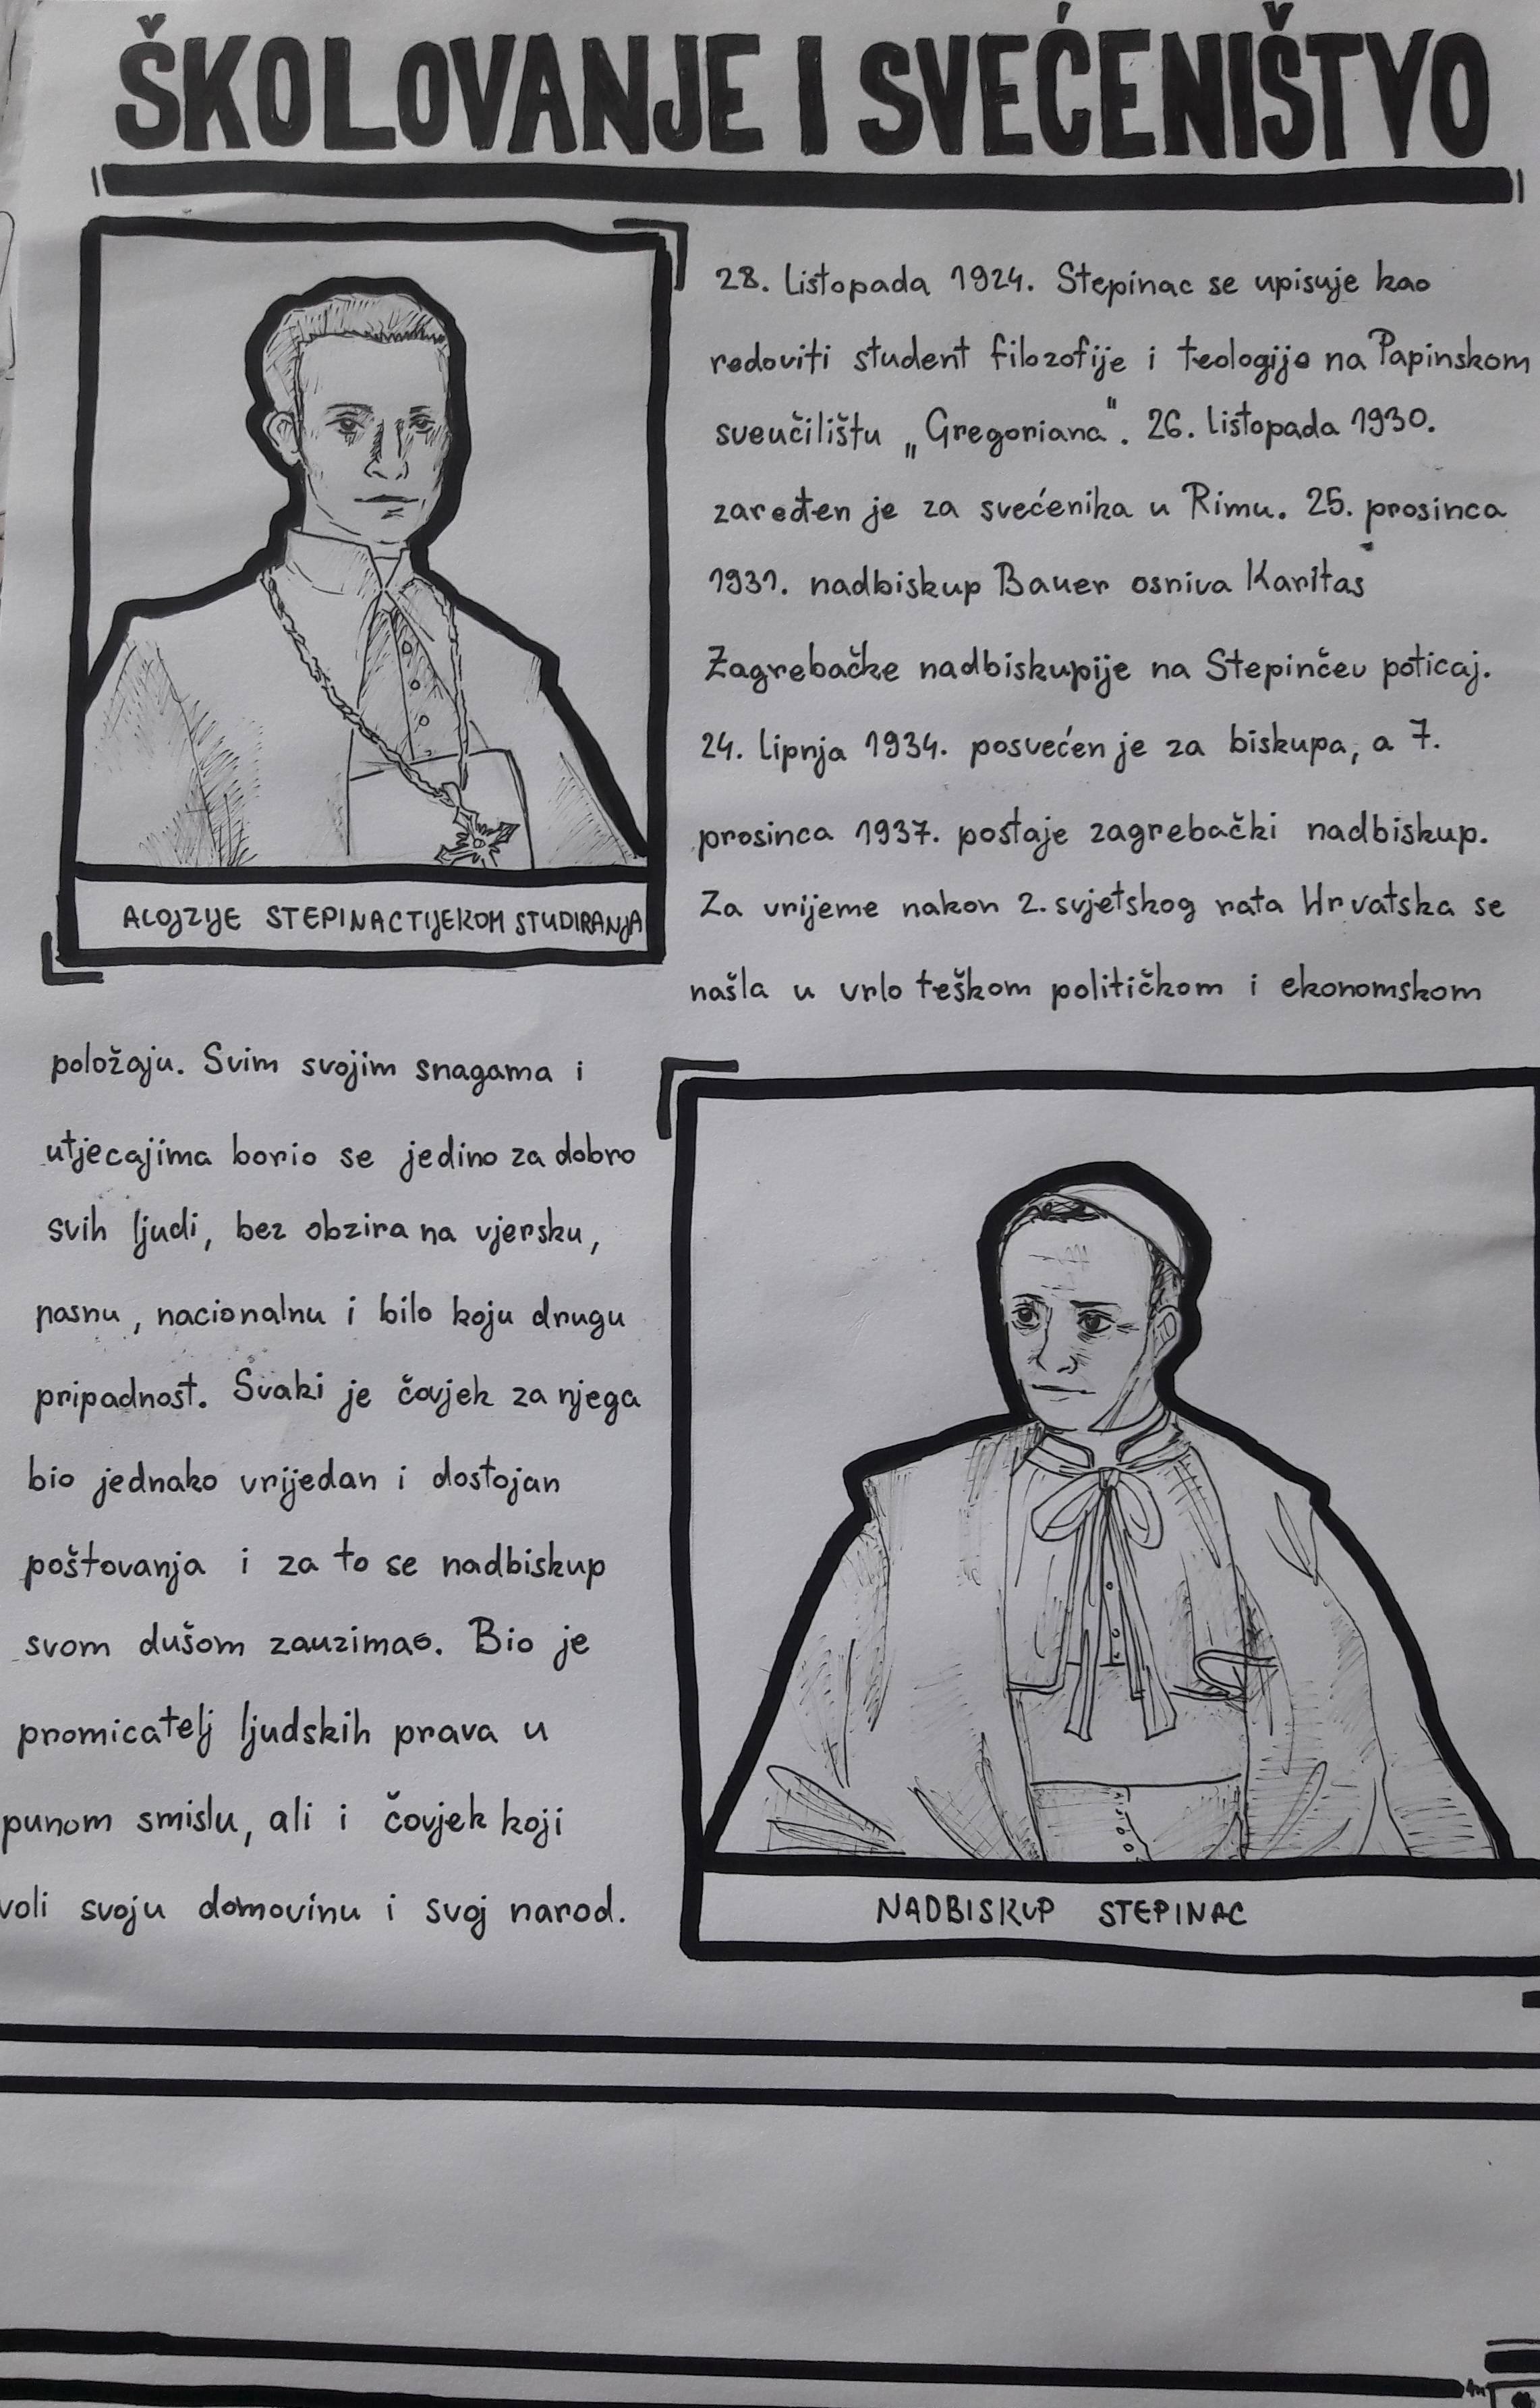 ŠKOLOVANJE I SVEĆENIŠTVO
28. listopada 1924. Stepinac se upisuje kao
redoviti student filozofije i teologije na Papinskom
sveučilištu „Gregoriana". 26. listopada 1930.
zaređen je za svećenika u Rimu. 25. prosinca
1931. nadbiskup Bauer osniva Karitas
Zagrebačke nadbiskupije na Stepinčev poticaj.
24. lipnja 1934. posvećen je za biskupa, a 7.
prosinca 1937. postaje zagrebački nadbiskup.
Za vrijeme nakon 2. svjetskog rata Hrvatska se
našla u vrlo teškom političkom i ekonomskom
ALOJZIJE STEPINAC TIJEKOM STUDIRANJA
položaju. Svim svojim snagama i
utjecajima borio se jedino za dobro
svih ljudi, bez obzira na vjersku,
rasnu, nacionalnu i bilo koju drugu
pripadnost. Svaki je čovjek za njega
bio jednako vrijedan i dostojan
poštovanja i za to se nadbiskup
svom dušom zauzimao. Bio je
promicatelj ljudskih prava u
punom smislu, ali i čovjek koji
voli svoju domovinu i svoj narod.
NADBISKUP STEPINAC